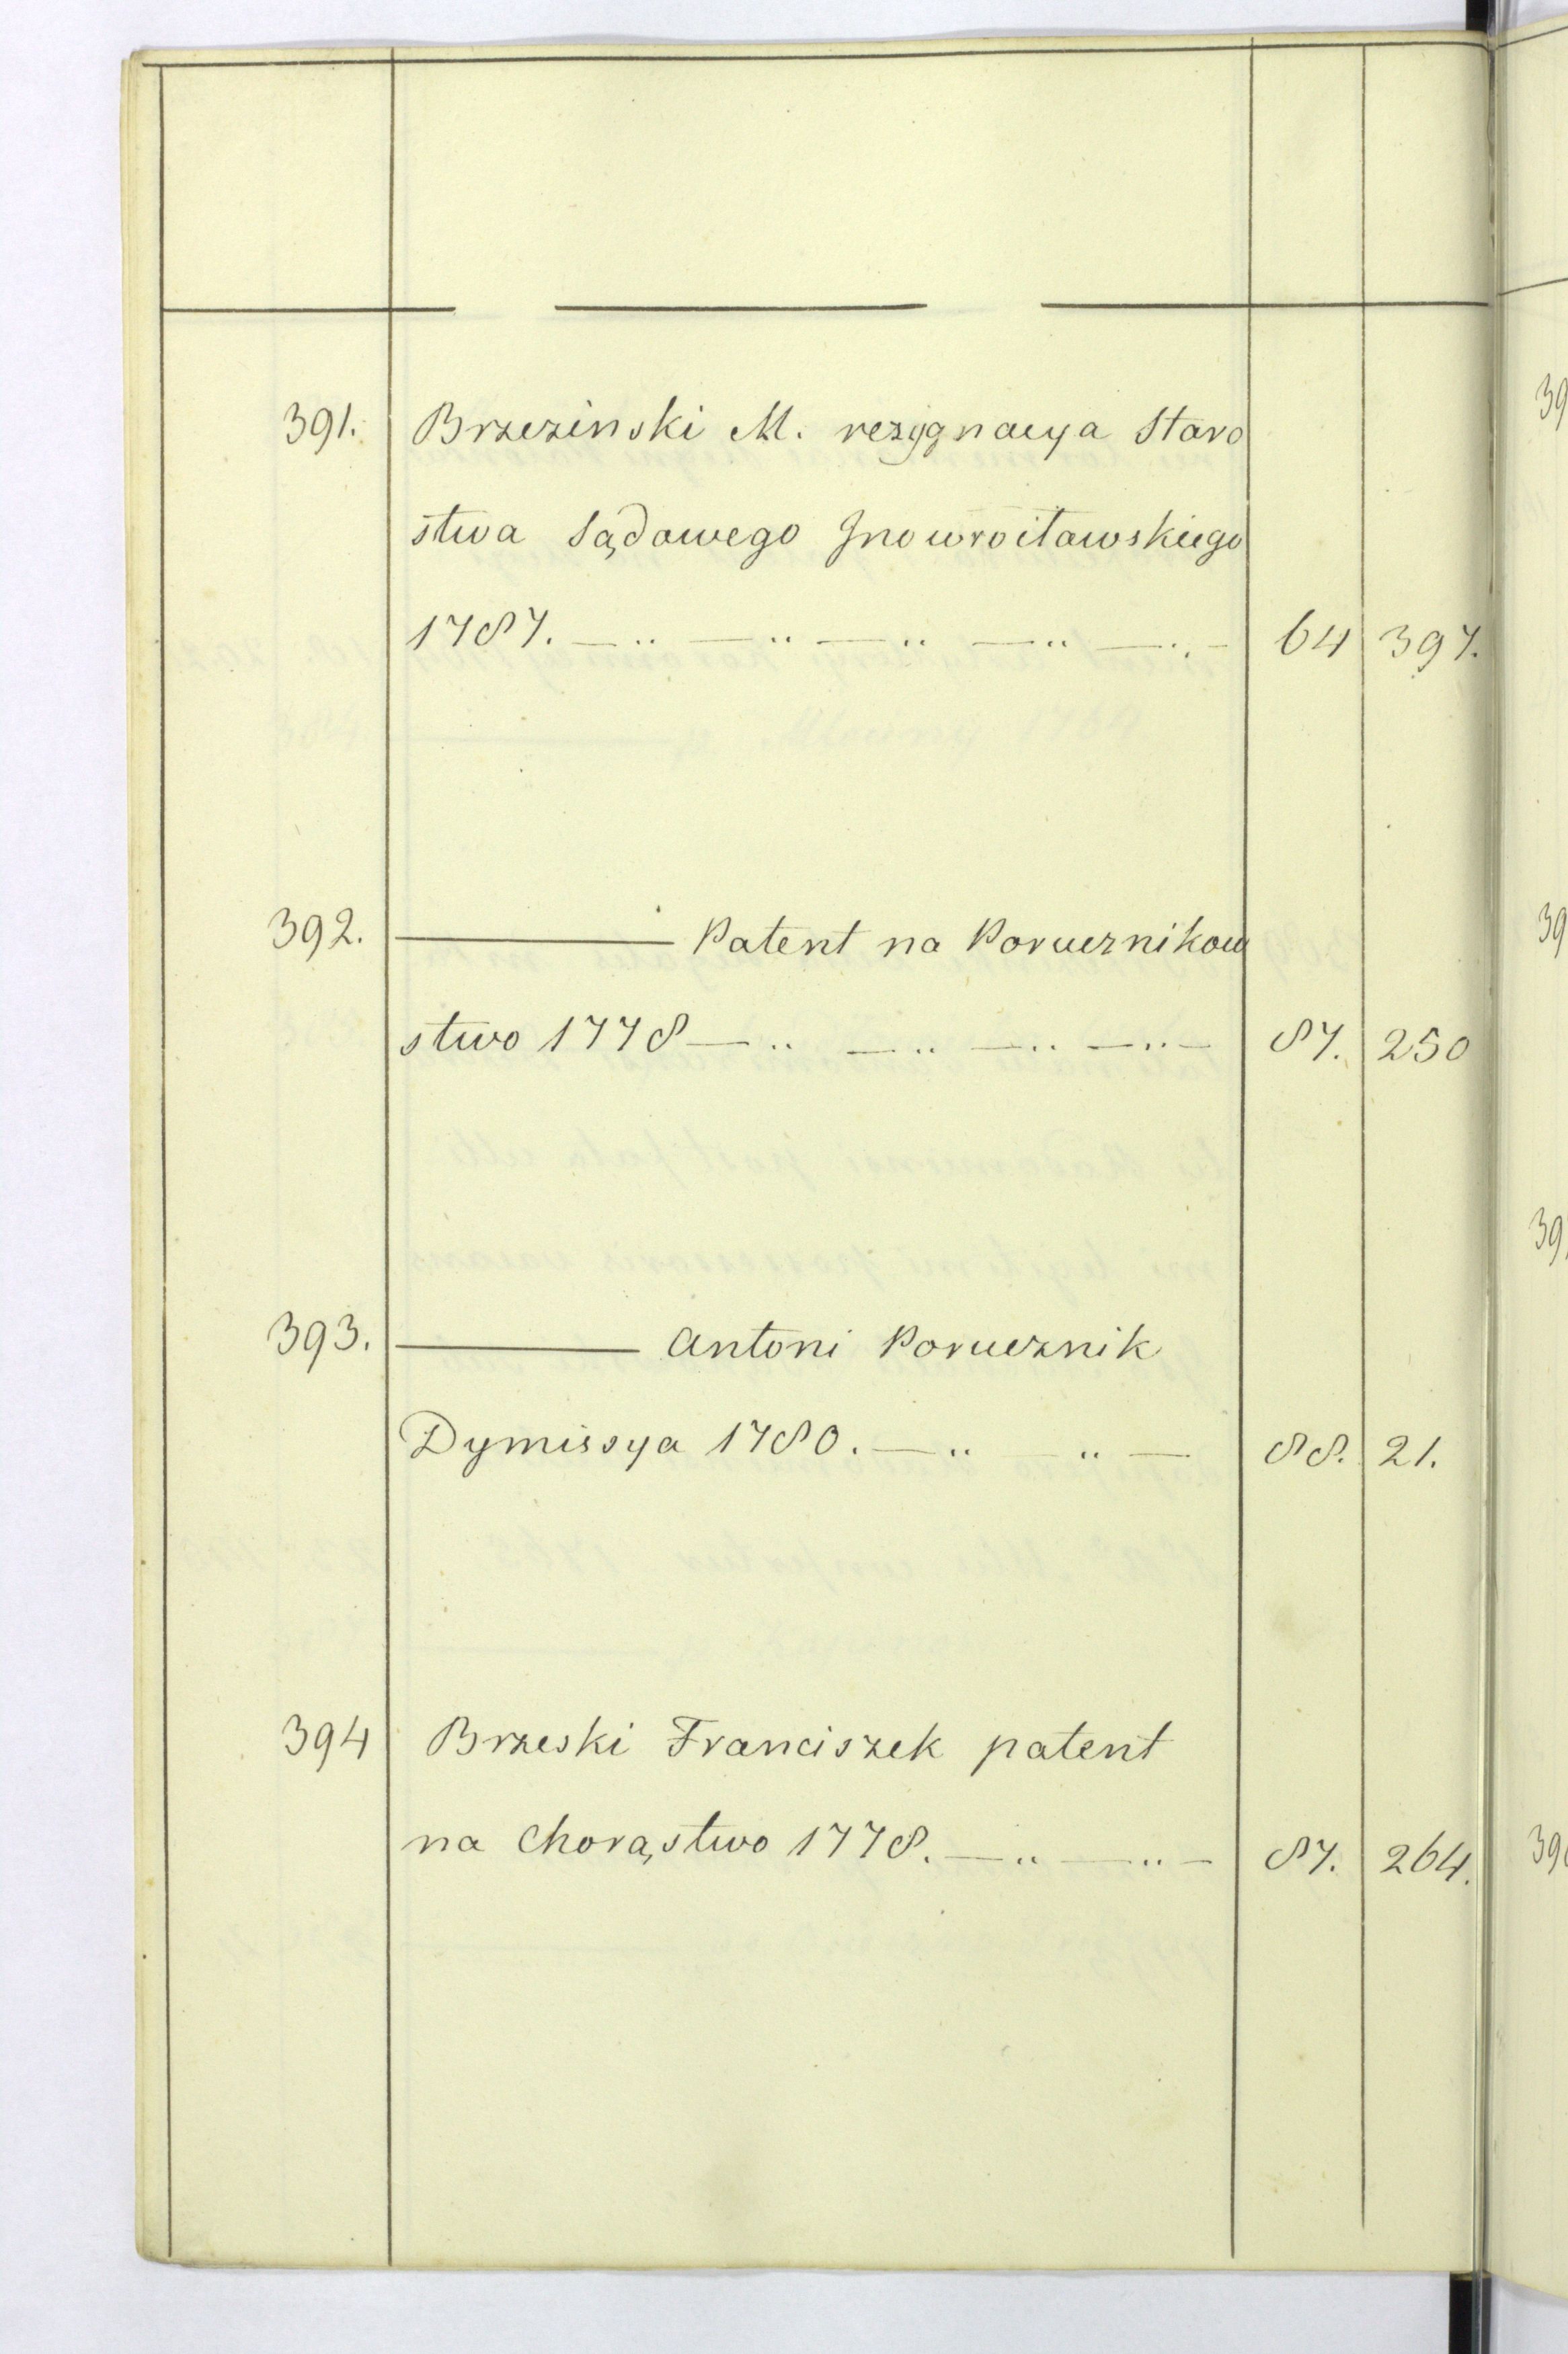 391. Brzezinski M. rezygnacya Staro
stwa Sądowego Inowrocławskiego
1787. — „ — „ — „ — „ — „ — 64 397.
392. ——— Patent na Porucznikow
stwo 1778 — „ — „ — „ — „ — 87. 250
393. ——— Antoni Porucznik
Dymissya 1780. — „ — „ — 88. 21.
394 Brzeski Franciszek patent
na Chorąstwo 1778. — „ — „ — 87. 264.